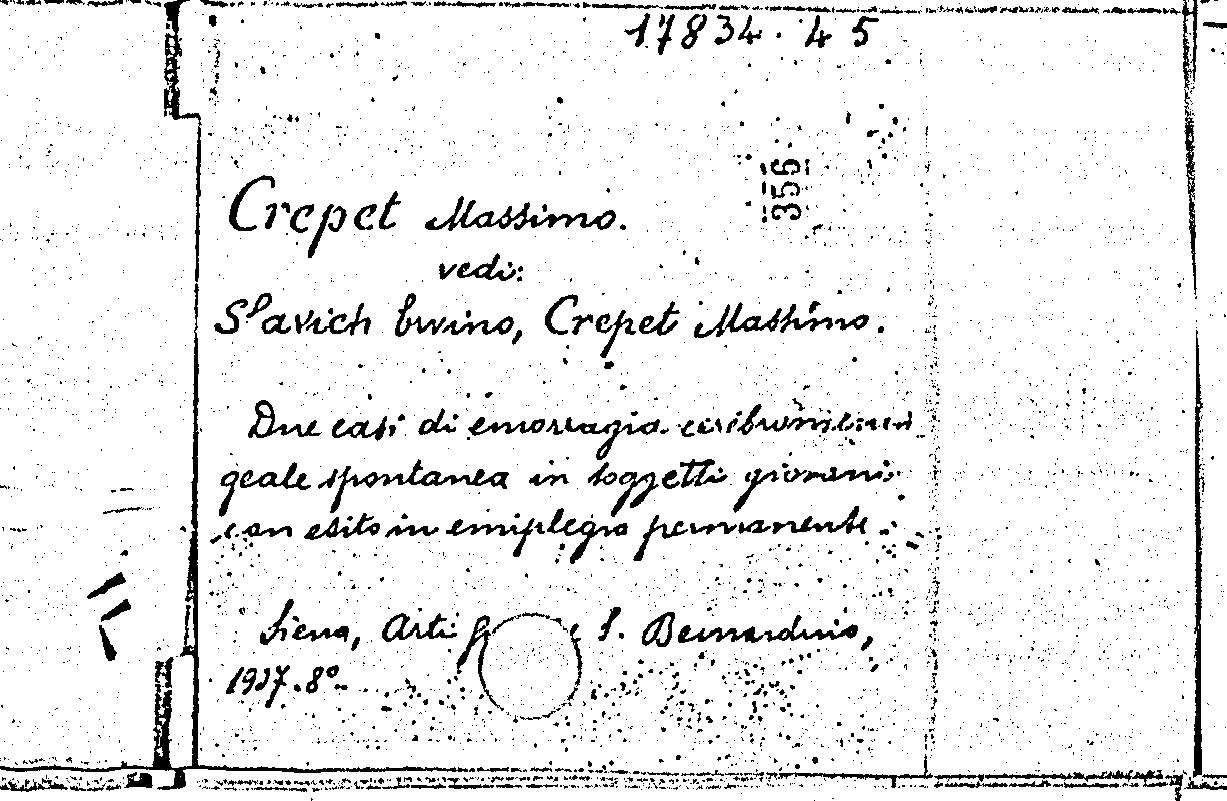 17834.45
356
Crepet Massimo.
vedi:
Slavich Ervino, Crepet Massimo.
Due casi di emorragia cerebromenin
geale spontanea in soggetti giovani
con esito in emiplegia permanente.
Siena, Arti S. Bernardino,
1937.8°.